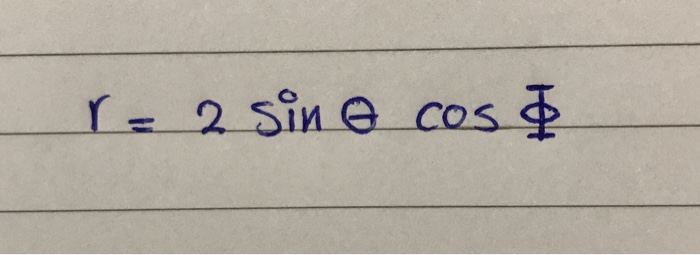 r = 2 sin θ cos Φ